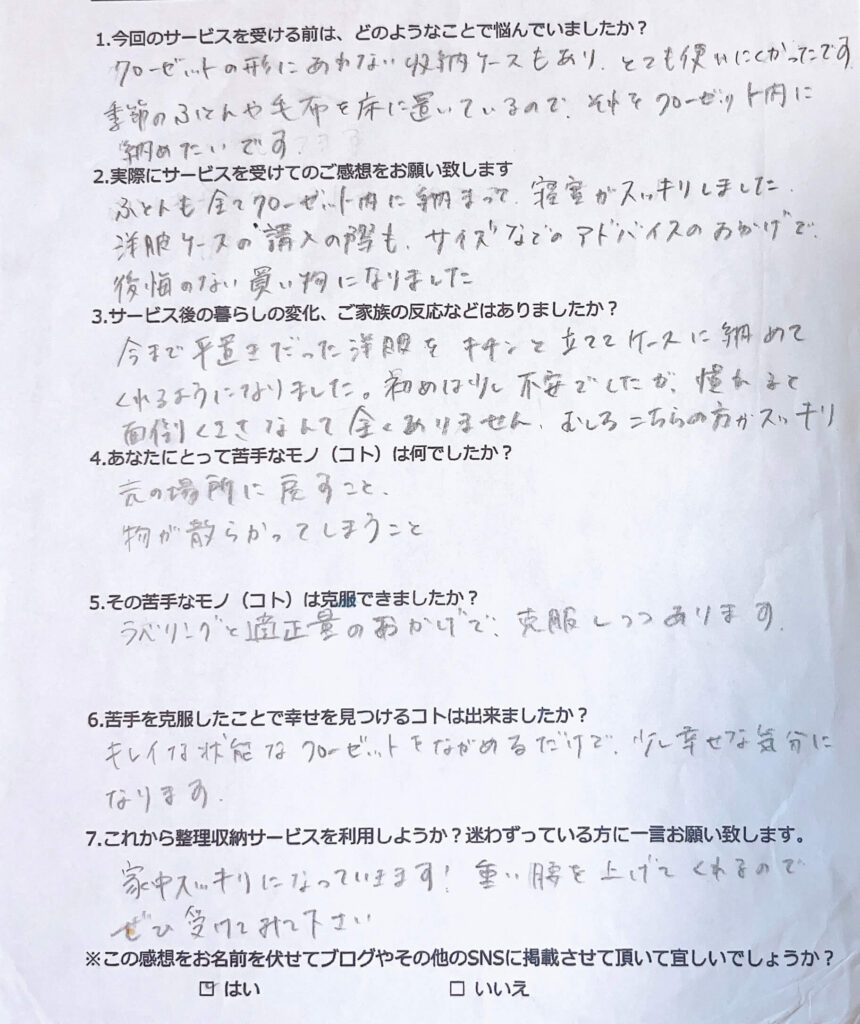 1.今回のサービスを受ける前は、どのようなことで悩んでいましたか？
クローゼットの形にあわない収納ケースもあり、とても使いにくかったです
季節のふとんや毛布を床に置いているので、それをクローゼット内に
納めたいです。
2.実際にサービスを受けてのご感想をお願い致します
ふとんも全てクローゼット内に納まって、寝室がスッキリしました。
洋服ケースの購入の際も、サイズなどのアドバイスのおかげで、
後悔のない買い物になりました
3.サービス後の暮らしの変化、ご家族の反応などはありましたか？
今まで平置きだった洋服をキチンと立ててケースに納めて
くれるようになりました。初めは少し不安でしたが、慣れると
面倒くささなんて全くありません、むしろこちらの方がスッキリ
4.あなたにとって苦手なモノ（コト）は何でしたか？
元の場所に戻すこと、
物が散らかってしまうこと
5.その苦手なモノ（コト）は克服できましたか？
ラベリングと適正量のおかげで、克服しつつあります。
6.苦手を克服したことで幸せを見つけるコトは出来ましたか？
キレイな状態なクローゼットをながめるだけで、少し幸せな気分に
なります。
7.これから整理収納サービスを利用しようか？迷わずっている方に一言お願い致します。
家中スッキリになっていきます！重い腰を上げてくれるので
ぜひ受けてみて下さい
※この感想をお名前を伏せてブログやその他のSNSに掲載させて頂いて宜しいでしょうか？
はい　いいえ